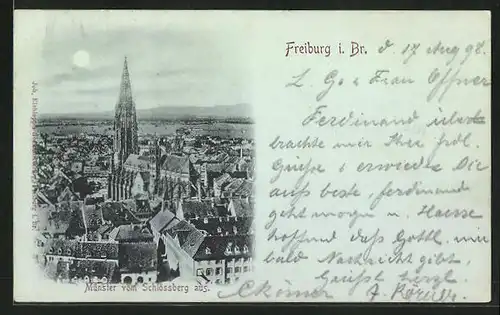 Freiburg i. Br.
d. 17 Aug 98.
L. Gg. Frau Offner
Ferdinand über
brachte mir Ihre frdl.
Grüsse u. erwiedre Die
aufs beste, ferdinand
geht morgen n. Hause
hoffend daß Gottl. mir
bald Nachricht gibt,
Grüßt herzl.
Münster vom Schlossberg aus.